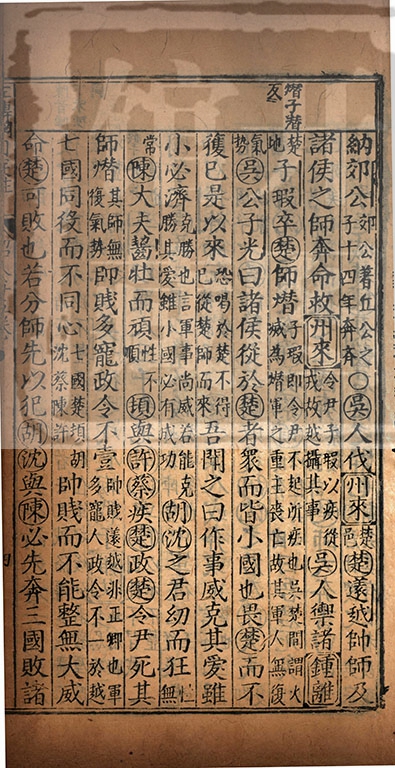 熸子潛反
納郊公郊公著丘公之子十四年奔齊○吳人伐州來楚邑楚薳越帥師及
諸侯之師奔命救州來令尹子瑕以疾從戎故越攝其事吳人禦諸鍾離
楚地子瑕卒楚師熸子瑕即令尹不起所疾也吳楚間謂火滅為熸軍之重主喪亡故其軍人無復
氣勢吳公子光曰諸侯從於楚者衆而皆小國也畏楚而不
獲已是以來恐喝於楚不得已從楚師而來吾聞之曰作事威克其愛雖
小必濟克勝也言軍事尚威若能克勝其愛雖小國必有成功胡沈之君幼而狂狂無
常陳大夫齧壯而頑性不順頓與許蔡疾楚政楚令尹死其
師熸其師無復氣勢帥賤多寵政令不壹帥賤薳越非正卿也軍多寵人政令不一於越
七國同役而不同心七國楚頓胡沈蔡陳許帥賤而不能整無大威
命楚可敗也若分師先以犯胡沈與陳必先奔三國敗諸